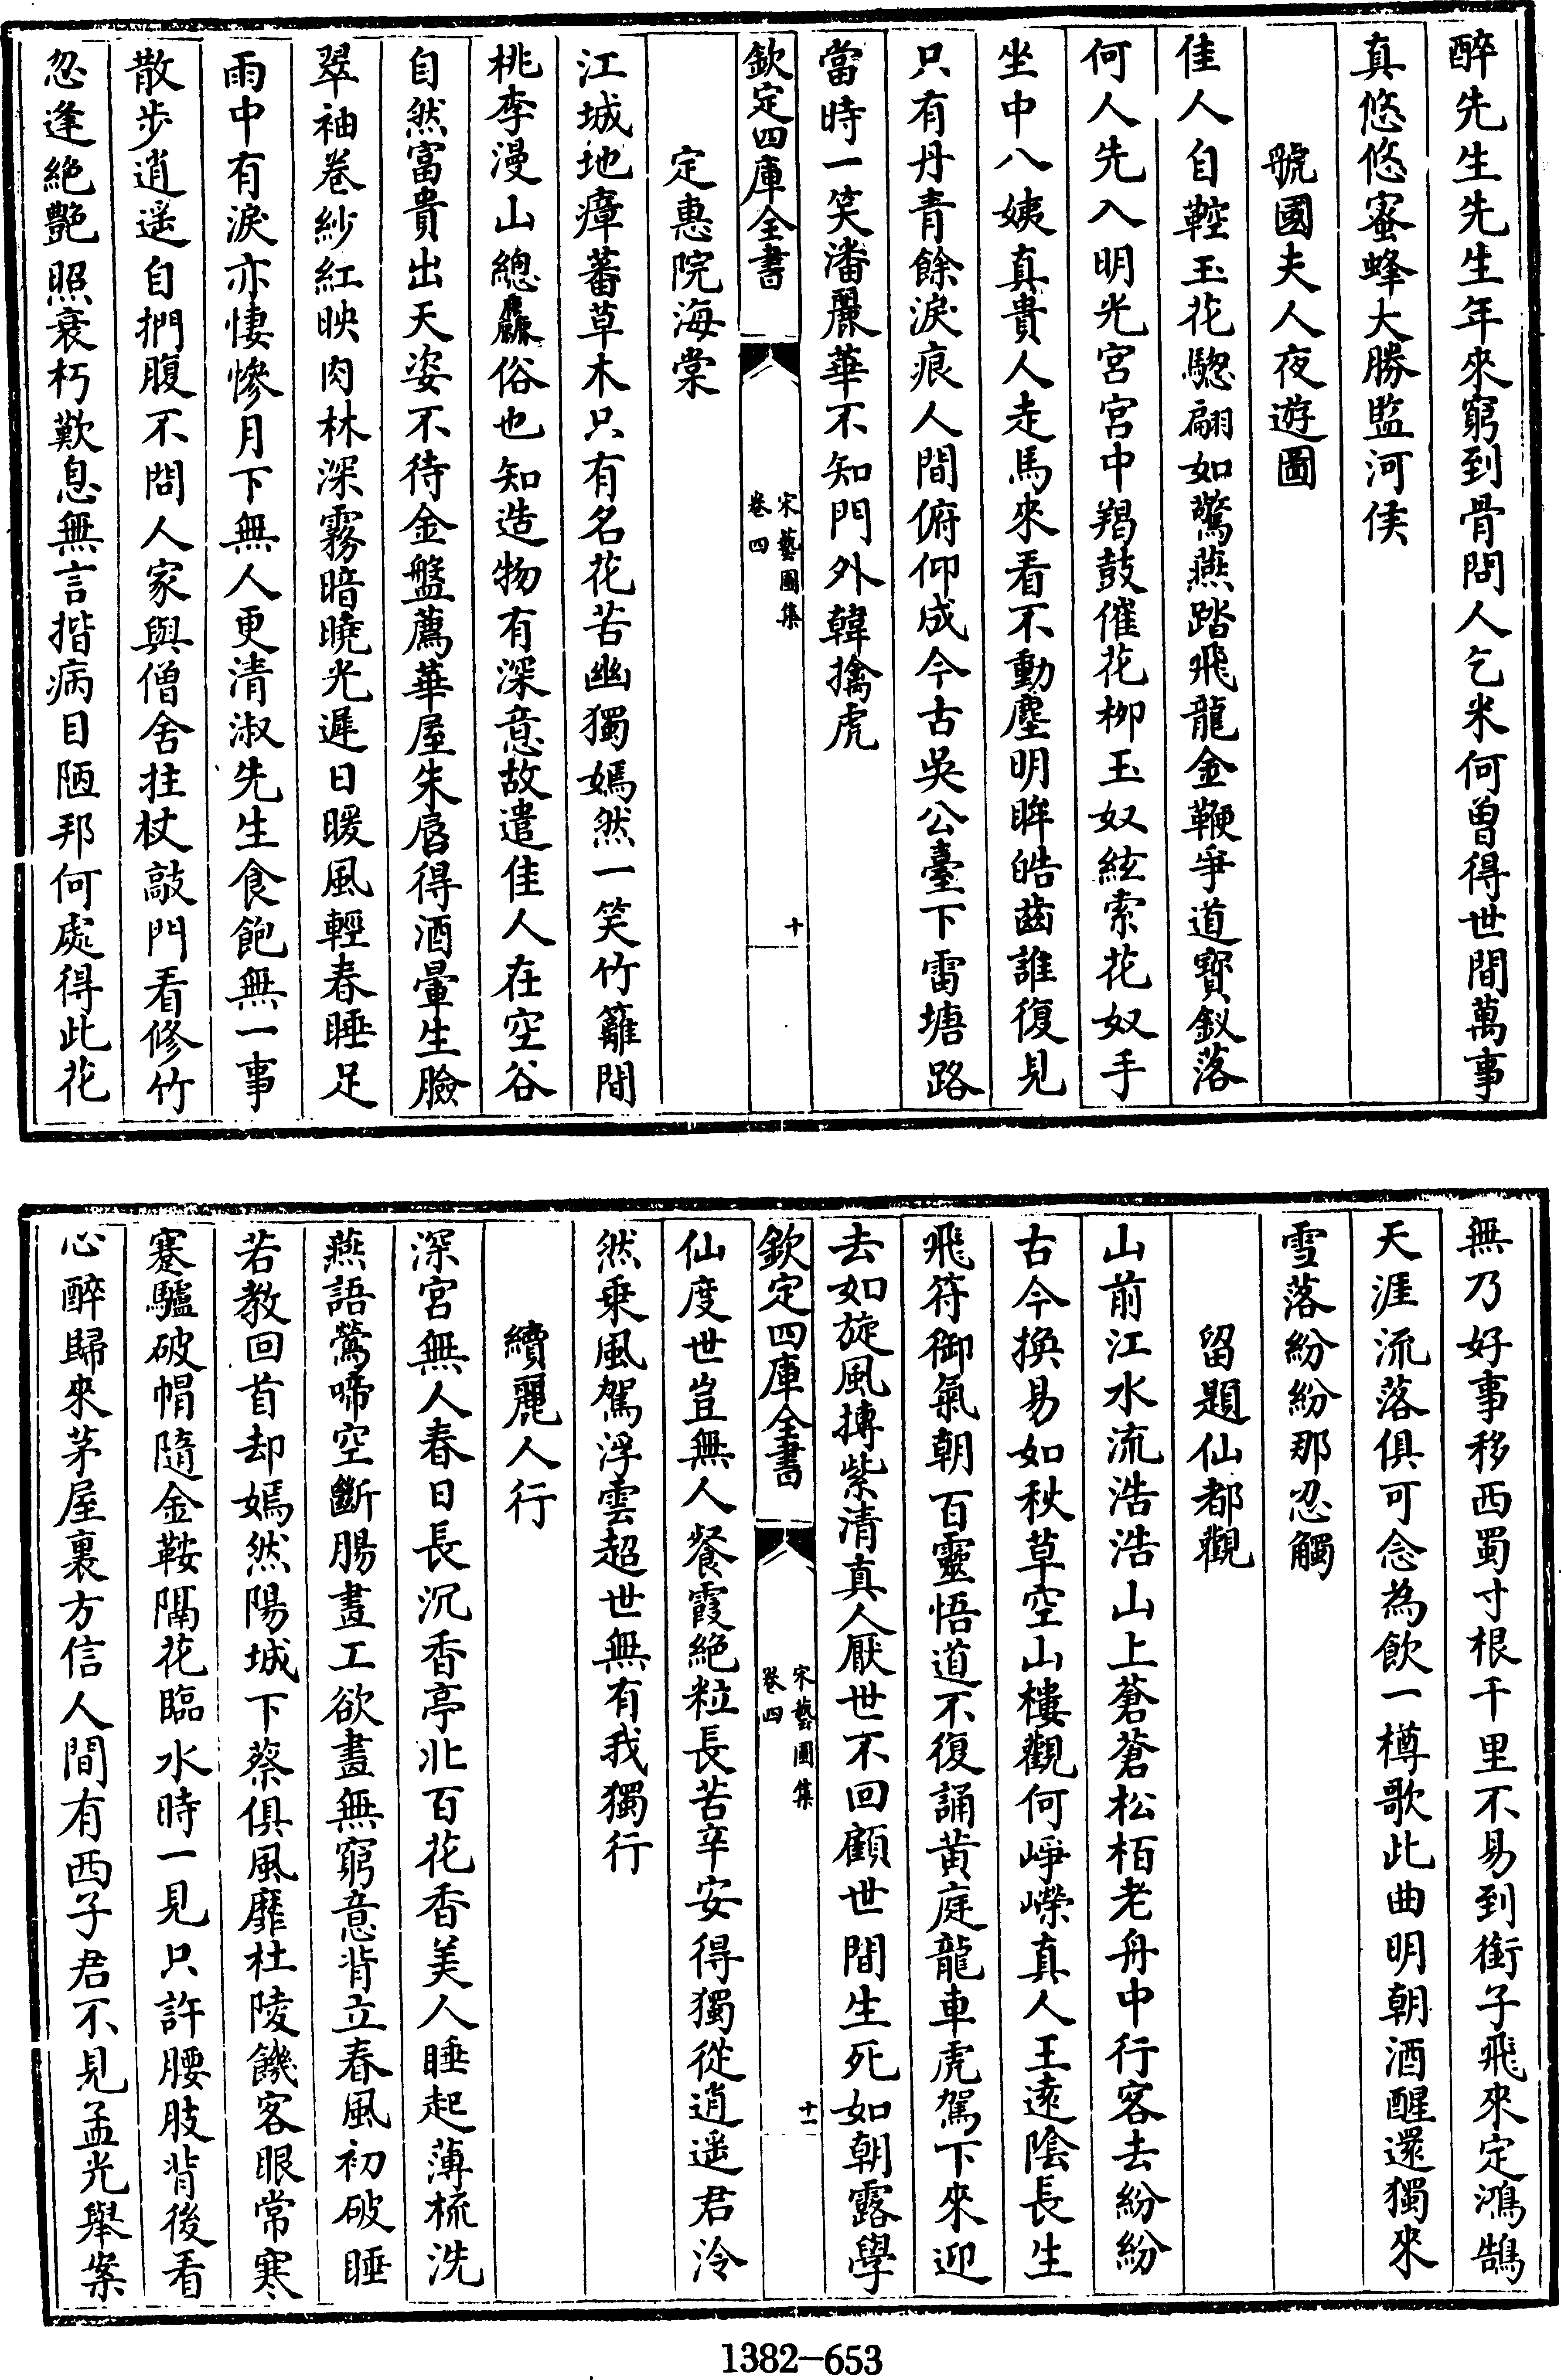 醉先生先生年來窮到骨問人乞米何曾得世間萬事
真悠悠蜜蜂大勝監河侯
虢國夫人夜遊圖
佳人自鞚玉花驄翩如驚燕踏飛龍金鞭爭道寶釵落
何人先入明光宮宮中羯鼓催花柳玉奴絃索花奴手
坐中八姨真貴人走馬來看不動塵明眸皓齒誰復見
只有丹青餘淚痕人間俯仰成今古吳公臺下雷塘路
當時一笑潘麗華不知門外韓擒虎
欽定四庫全書
宋藝圃集
卷四
十
定惠院海棠
江城地瘴蕃草木只有名花苦幽獨嫣然一笑竹籬間
桃李漫山總麤俗也知造物有深意故遣佳人在空谷
自然富貴出天姿不待金盤薦華屋朱唇得酒暈生臉
翠袖卷紗紅映肉林深霧暗曉光遲日暖風輕春睡足
雨中有淚亦悽慘月下無人更清淑先生食飽無一事
散步逍遥自捫腹不問人家與僧舍拄杖敲門看修竹
忽逢絶艷照衰朽歎息無言揩病目陋邦何處得此花
無乃好事移西蜀寸根千里不易到銜子飛來定鴻鵠
天涯流落俱可念為飲一樽歌此曲明朝酒醒還獨來
雪落紛紛那忍觸
留題仙都觀
山前江水流浩浩山上蒼蒼松栢老舟中行客去紛紛
古今換易如秋草空山樓觀何崢嶸真人王遠陰長生
飛符御氣朝百靈悟道不復誦黄庭龍車虎駕下來迎
去如旋風摶紫清真人厭世不回顧世間生死如朝露學
欽定四庫全書
宋藝圃集
卷四
十一
仙度世豈無人餐霞絶粒長苦辛安得獨從逍遥君泠
然乗風駕浮雲超世無有我獨行
續麗人行
深宮無人春日長沉香亭北百花香美人睡起薄梳洗
燕語鶯啼空斷腸畫工欲畫無窮意背立春風初破睡
若教回首却嫣然陽城下蔡俱風靡杜陵饑客眼常寒
蹇驢破帽隨金鞍隔花臨水時一見只許腰肢背後看
心醉歸來茅屋裏方信人間有西子君不見孟光舉案
1382-653